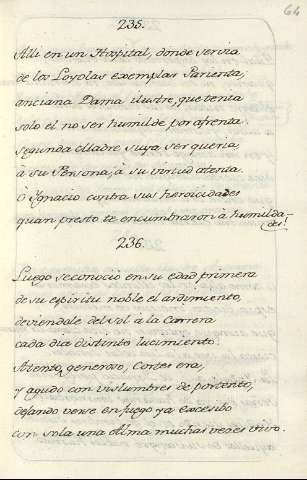 64
235.
Alli en un Hospital, donde servia
de los Loyolas exemplar Parienta,
anciana Dama ilustre, que tenia
solo el no ser humilde por afrenta.
segunda Madre suya ser queria
à su Persona, à su virtud atenta.
O Ygnacio contra sus heroicidades
quan presto te encumbraron à humilda-
des!
236.
Luego se conociò en su edad primera
de su espiritu noble el ardimiento,
deviendole del sol à la Carrera
cada dia distinto lucimiento.
Atento, generoso, Cortes era,
y agudo con vislumbres de portento,
dejando verse en fuego ya excesibo
con sola una Alma muchas veces vivo.